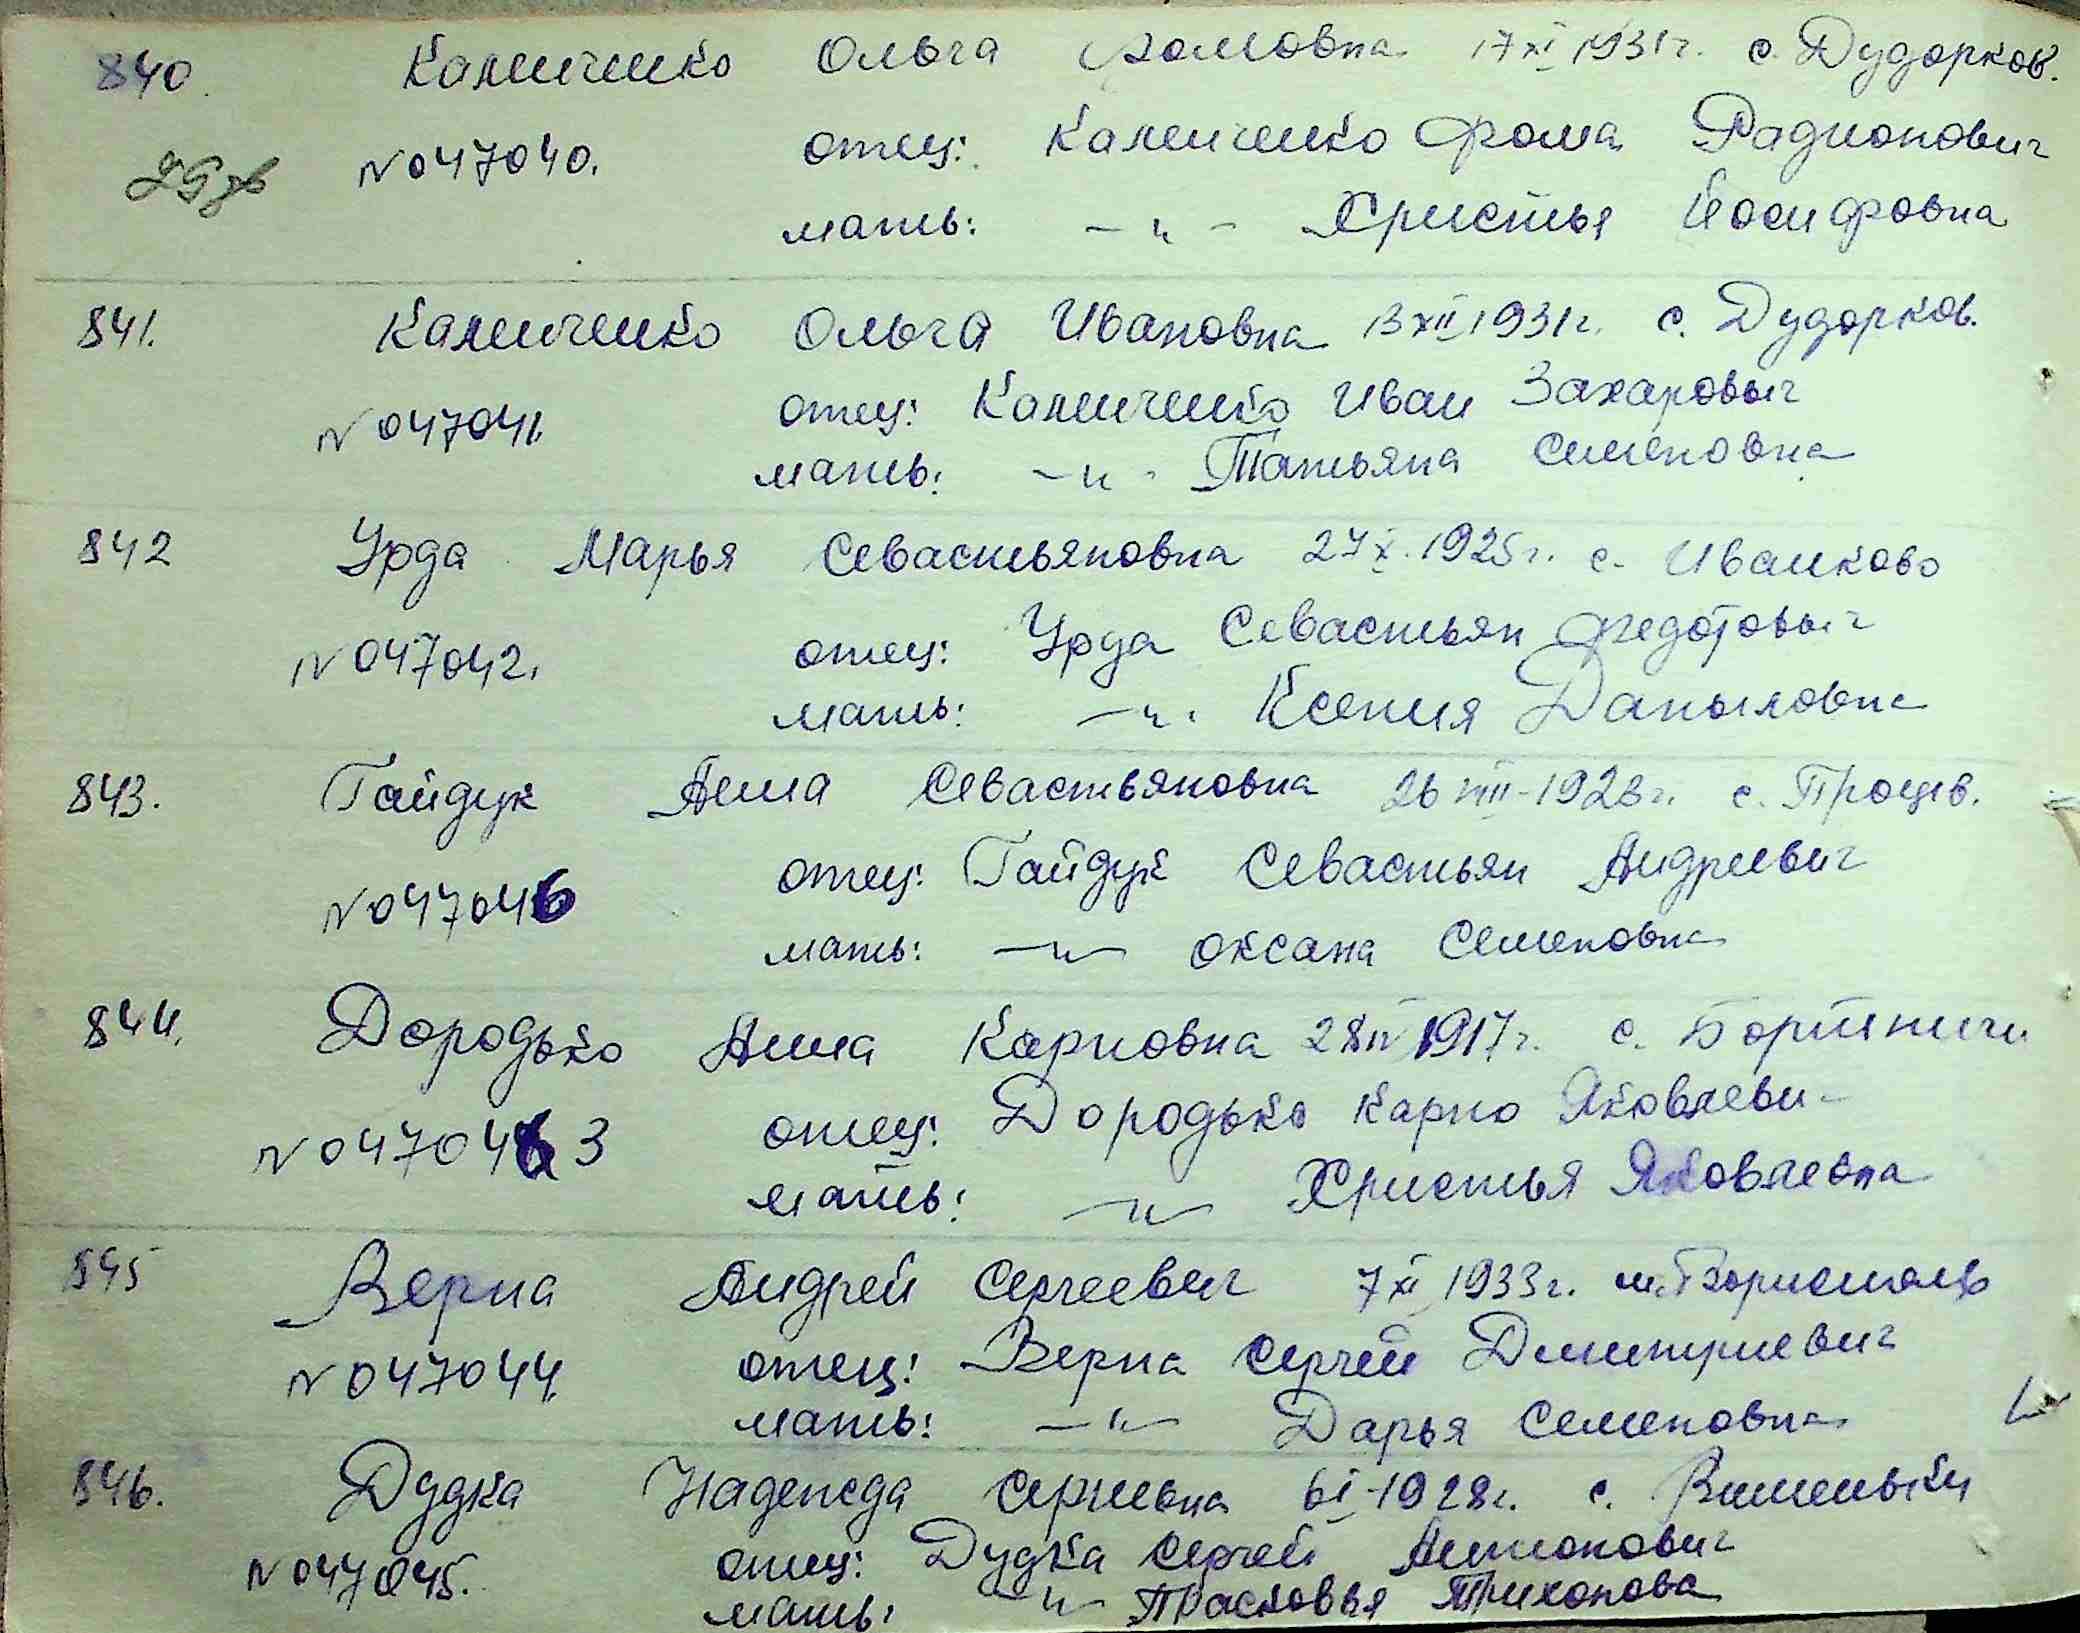 840. Калениченко Ольга Фомовна 17 XI 1931 г. с. Дударков.
N 047040. отец: Калениченко Фома Радионович
мать: — " — Христья Йосифовна
841. Калениченко Ольга Ивановна 13 XII 1931 г. с. Дударков.
N 047041. отец: Калениченко Иван Захаровыч
мать: — " — Татьяна Семеновна
842 Урда Марья Севастьяновна 27 X. 1925 г. с. Иванково
N 047042. отец: Урда Севастьян Федотовыч
мать: — " — Ксения Даныловна
843. Гайдук Анна Севастьяновна 26 VIII - 1923 г. с. Процев.
N 047046 отец: Гайдук Севастьян Андреевич
мать: — " — Оксана Семеновна
844. Дородько Анна Карповна 28 IV 1917 г. с. Бортничи
N 04704 3 отец: Дородько Карпо Яковлеви-
мать: — " — Христья Яковлевна
845 Верпа Андрей Сергеевич 7 XI 1933 г. м. Борисполь
N 047044. отец: Верпа Сергей Дмитриевич
мать: — " — Дарья Семеновна
846. Дудка Надежда Сергиевна 6 I - 1928 г. с. Вишеньки
N 047045. отец: Дудка Сергей Антонович
мать: — " — Прасковья Трихонова